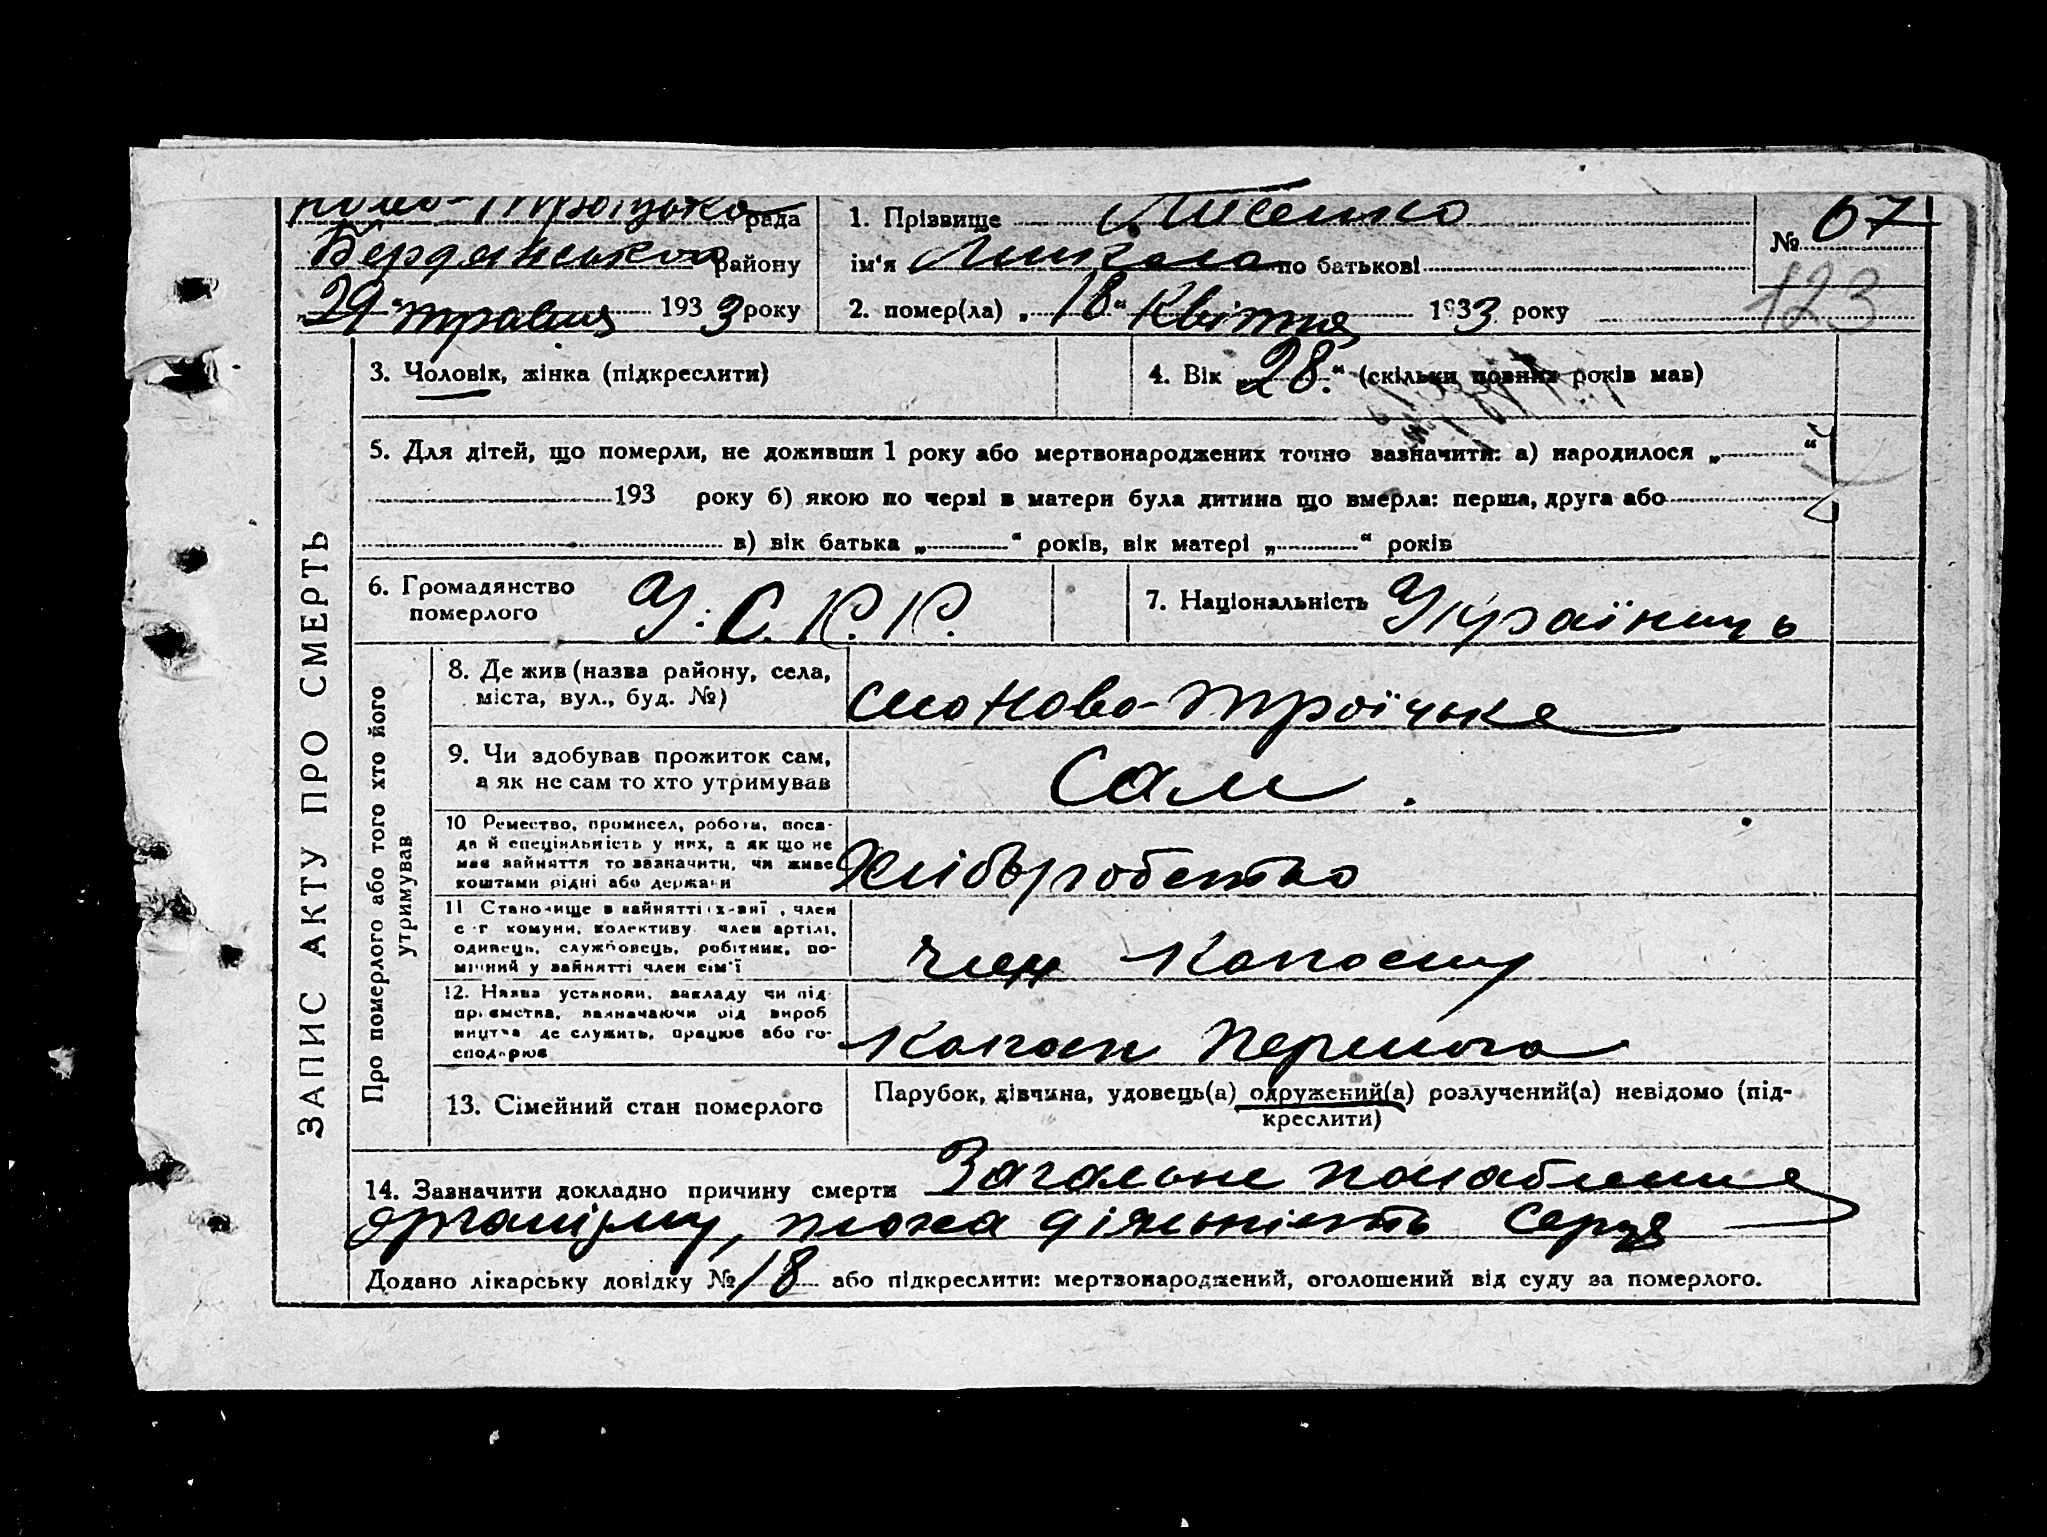 Ново-Троїцька рада
Бердянського району
„29“ травня 1933 року
1. Прізвище Лисенко
ім‘я Микола по батькові
2. помер(ла) „18“ Квітня 1933 року
№ 67
123
ЗАПИС АКТУ ПРО СМЕРТЬ
3. Чоловік, жінка (підкреслити)
4. Вік „28.“ (скільки повних років мав)
5. Для дітей, що померли, не доживши 1 року або мертвонароджених точно зазначити: а) народилося „ “
193 року б) якою по черзі в матери була дитина що вмерла: перша, друга або
в) вік батька „ “ років, вік матері „ “ років
6. Громадянство
померлого
У. С. Р. Р.
7. Національність Українець
Про померлого або того хто його
утримував
8. Де жив (назва району, села,
міста, вул., буд. №)
село Ново-Троїцьке
9. Чи здобував прожиток сам,
а як не сам то хто утримував
Сам.
10 Ремество, промисел, робота, поса-
да й спеціяльність у них, а як що не
має зайняття то зазначити, чи живе
коштами рідні або держави
Хліборобство
11 Становище в зайнятті
с-г комуни, колективу член артілі,
одинець, службовець, робітник, по-
мічний у зайнятті член сім‘ї
член Колгоспу
12. Назва установи, закладу чи під
приємства, зазначаючи від вироб
ництва де служить, працює або го-
сподарює
Колгосп Перемога
13. Сімейний стан померлого
Парубок, дівчина, удовець(а) одружений(а) розлучений(а) невідомо (під-
креслити)
14. Зазначити докладно причину смерти Загальне послаблення
організму, плоха діяльність серця
Додано лікарську довідку № 18 або підкреслити: мертвонароджений, оголошений від суду за померлого.